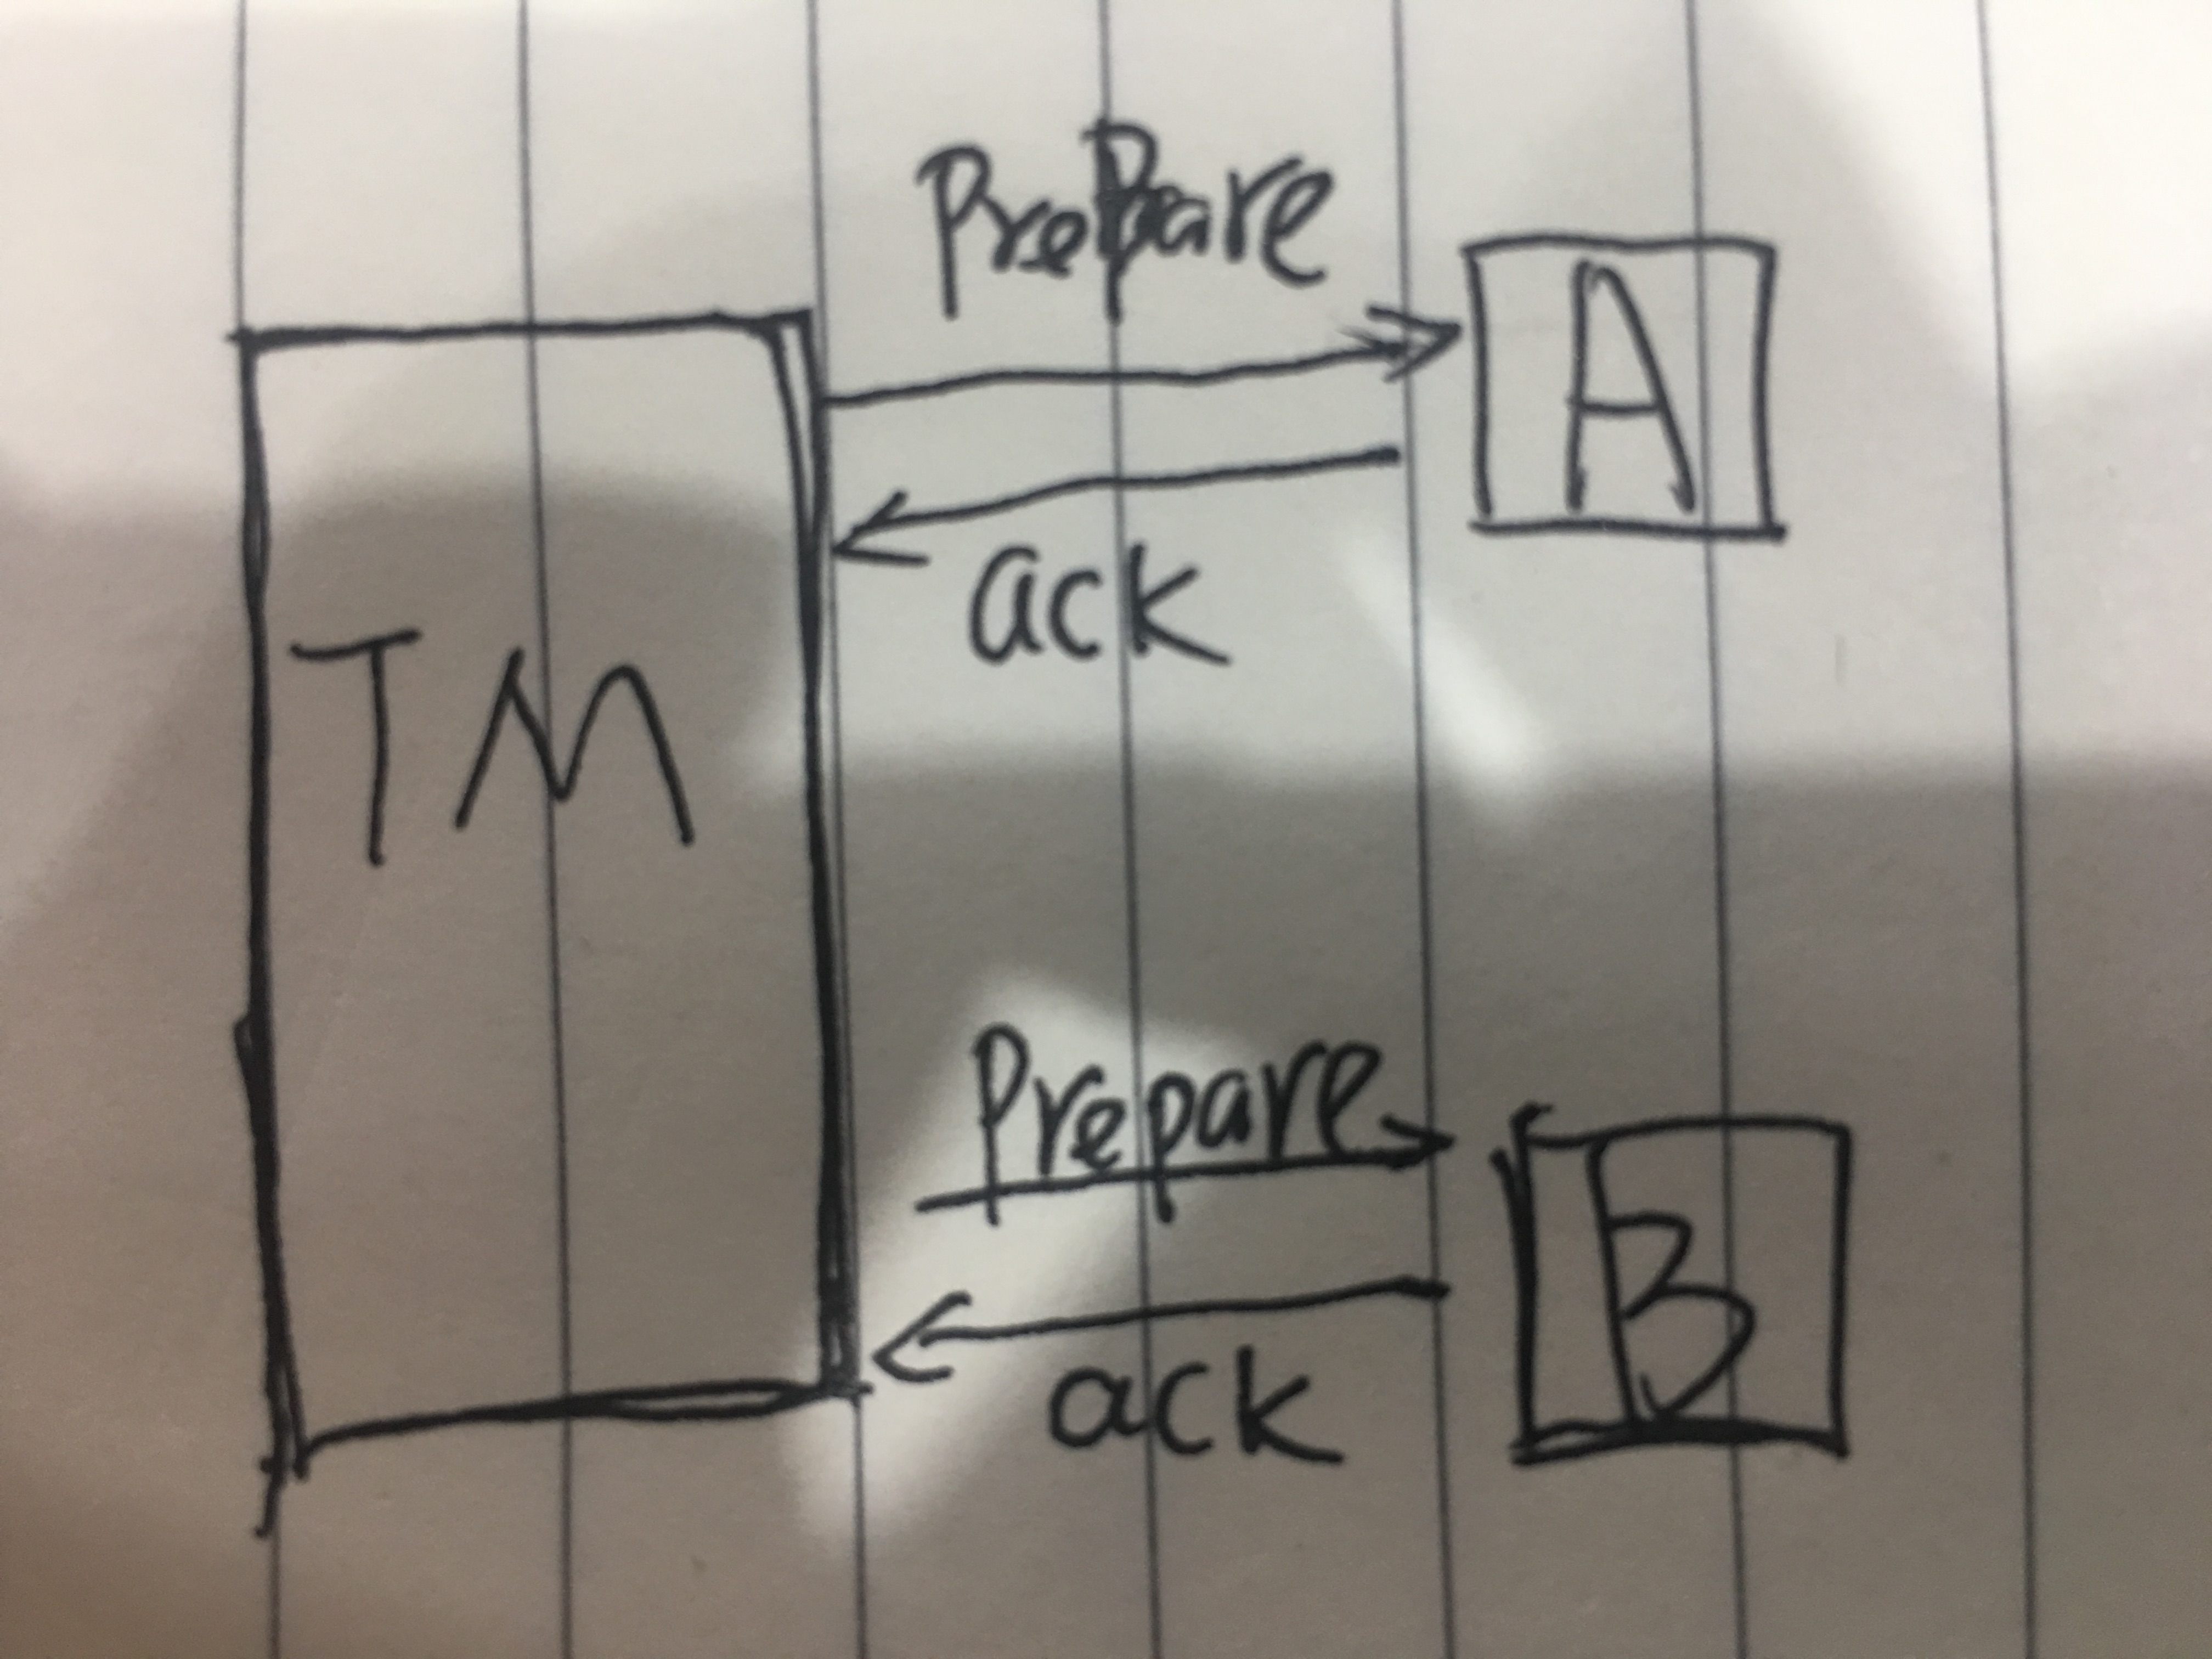 Prepare
A
ack
TM
Prepare
B
ack